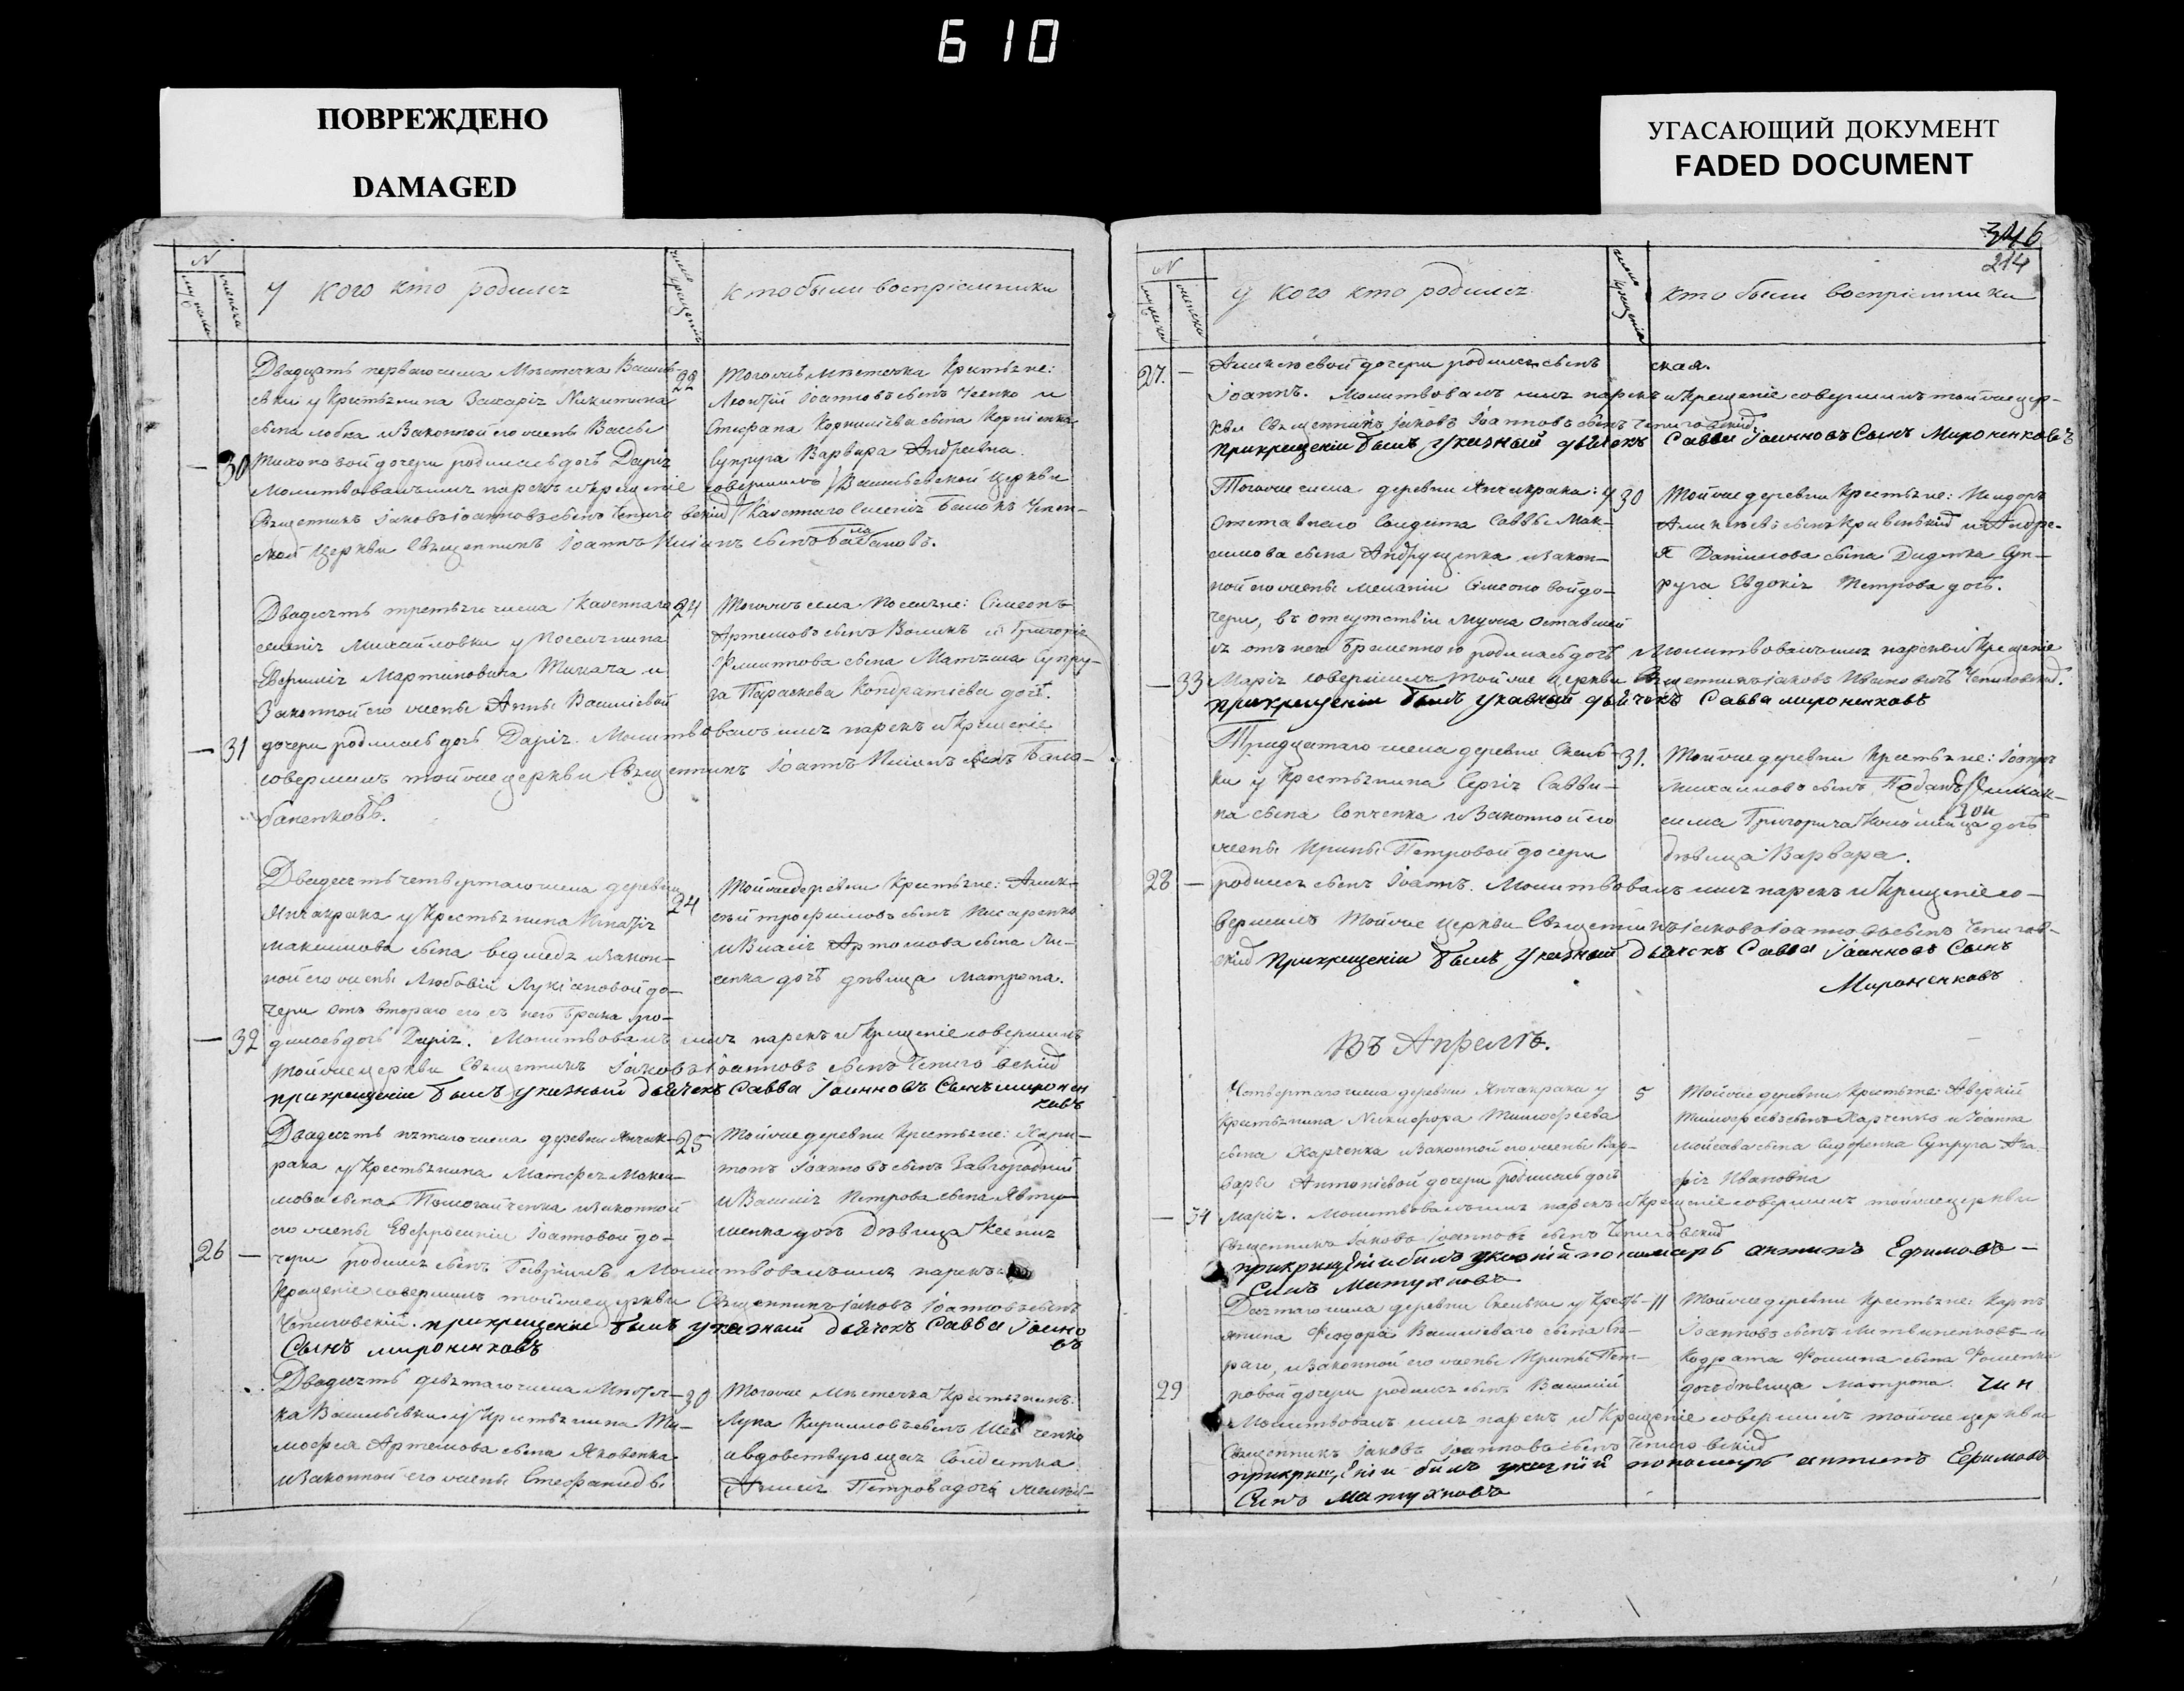 610
ПОВРЕЖДЕНО
DAMAGED
УГАСАЮЩИЙ ДОКУМЕНТ
FADED DOCUMENT
N
У кого кто родился
кто были воспріемники
Двадцать перваго числа Мѣстечка Василь-
евки у Крестьянина Захарія Никитина
сына и законной его жены
30
дочери родилась дочь Дарія
Молитвовалъ имя нарекъ и крещеніе совершилъ Васильевской церкви
Священникъ Іаковъ Іоанновъ сынъ
ской церкви Священникъ Іоаннъ
22
Тогожъ мѣстечка Крестьяне:
Леонтій Іоанновъ сынъ и
Стефана Корниліева сына Корніенка
Супруга Варвара Андреевна.
Двадесять третьяго числа Казеннаго
селенія Михайловки у Поселянина
Мартиновича Ткача и
Законной его жены Анны Василіевой
31
дочери родилась дочь Дарія. Молитвовалъ имя нарекъ и крещеніе
совершилъ тойже церкви Священникъ Іоаннъ
24
Тогожъ села Поселяне: Симеонъ
Артемовъ сынъ Воликъ и Григорія
сына Супру-
га Параскева Кондратіева дочь.
Двадесять четвертаго числа деревни
Янчакрака у Крестьянина Игнатія
Максимова сына и закон-
ной его жены Любовіи Лукіановой до-
чери отъ втораго его съ него брака ро-
32
дилась дочь Дарія. Молитвовалъ имя нарекъ и крещеніе совершилъ
тойже церкви Священникъ Іаковъ Іоанновъ сынъ
прикрещеніи былъ указный дьячекъ Савва Іоанновъ Сынъ миронен
ковъ
24
Тойже деревни Крестьяне: Алек-
сѣй трофимовъ сынъ Писаренко
и Власія Артомова сына Ли-
сенка дочь дѣвица Матрона.
Двадесять пятаго числа деревни Янчак-
рака у Крестьянина Матфея Макси-
мова сына и законной
его жены Евфросиніи Іоанновой до-
26
чери родился сынъ Гавріилъ. Молитвовалъ имя нарекъ
крещеніе совершилъ тойже церкви Священникъ Іаковъ Іоанновъ сынъ
прикрещеніи былъ указный дьячекъ Савва Іоано
Сынъ мироненковъ въ
25
Тойже деревни Крестьяне: Хари-
тонъ Іоанновъ сынъ Завгородній
и Василія Петрова сына Явту-
шенка дочь дѣвица Ксенія
Двадесять девятаго числа Мѣстеч-
ка Васильевки у Крестьянина Ти-
мофея Артемова сына Яковенка
и законной его жены Стефаниды
30
Тогоже Мѣстечка Крестьянинъ:
Лука Кирилловъ сынъ Шевченко
а вдовствующая Солдатка
Петрова дочь
346
214
N
У кого кто родился
кто были воспріемники
27.
Алексѣевой дочери родился сынъ
ская.
Іоаннъ. Молитвовалъ имя нарекъ и крещеніе совершилъ тойже цер-
кви Священникъ Іаковъ Іоанновъ сынъ
прикрещеніи былъ указный дьячекъ Савва Іоанновъ Сынъ Мироненковъ
Тогоже числа деревни Янчакрака: у
отставнаго Солдата Саввы Мак-
симова сына Андрущенка и закон-
ной его жены Меланіи Симеоновой до-
чери, въ отсутствіи мужа оставшей
ся отъ него беременною родилась дочь Молитвовалъ имя нарекъ и Крещеніе
33
Марія совершилъ тойже церкви Священникъ Іаковъ Ивановичъ
прикрещеніи былъ указный дьячекъ Савва мироненковъ
30
Тойже деревни Крестьяне: Исидоръ
Алексѣевъ сынъ и Андре-
я Даніилова сына Дядика Суп-
руга Евдокія Петрова дочь.
Тридцатаго числа деревни Скель-
ки у Крестьянина Сергія Савви-
на сына и Законной его
жены Ирины Петровой дочери
28
родился сынъ Іоаннъ. Молитвовалъ имя нарекъ и Крещеніе со-
вершилъ тойже церкви Священникъ Іаковъ Іоанновъ сынъ
прикрещеніи былъ указный дьячекъ Савва Іоанновъ Сынъ
Мироненковъ
31.
Тойже деревни Крестьяне:
Михаиловъ сынъ
Григорича дочь
дѣвица Варвара.
Въ Апрелѣ.
Четвертаго числа деревни Янчакрака у
Крестьянина Никифора Тимофеева
сына Харченка и законной его жены Вар-
вары Антоніевой дочери родилась дочь
34
Марія. Молитвовалъ имя нарекъ и Крещеніе совершилъ тойже церкви
Священникъ Іаковъ Іоанновъ сынъ
прикрищеніи билъ указній пономарь антипъ Ефимовъ
Синъ Матухновъ
5
Тойже деревни Крестьяне: Аверкій
Тимофеевъ сынъ Харченко и Іоанна
Мойсеева сына Сидоренка Супруга Ага
фія Ивановна
числа деревни Скельки у Кресть-
янина Феодора Василіеваго сына
и законной его жены Ирины Пет-
29
ровой дочери родился сынъ Василій
Молитвовалъ имя нарекъ и Крещеніе совершилъ тойже церкви
Священникъ Іаковъ Іоанновъ сынъ
прикрищеніи билъ указній пономарь антипъ Ефимовъ
Синъ Матухновъ
11
Тойже деревни Крестьяне: Карпъ
Іоанновъ сынъ Литвиненковъ и
Кодрата Фомина сына Фоменка
дочь дѣвица Матрона.